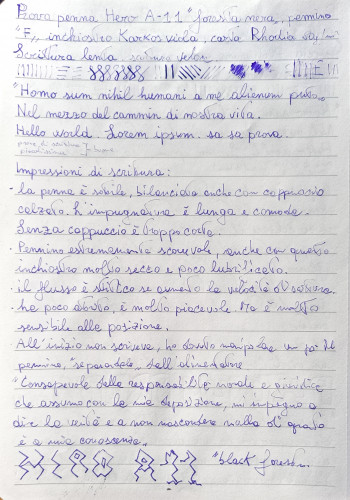 Prova penna Hero A-11 "foresta nera", pennino
"F", inchiostro Karkos viola, carta Rhodia
Scrittura lenta scrittura veloce
"Homo sum nihil humani a me alienum puto"
Nel mezzo del cammin di nostra vita.
Hello world. Lorem ipsum. sa sa prova
Impressioni di scrittura:
- La penna è sobile, bilanciata anche con cappuccio
calzato. L'impugnatura è lunga e comoda.
Senza cappuccio è troppo corta.
- Pennino estremamente scorrevole, anche con questo
inchiostro molto secco e poco lubrificato.
- il flusso è stitico se aumento la velocità di scrittura.
- ha poco attrito, è molto piacevole. Ma è molto
sensibile alla posizione.
All'inizio non scriveva, ho dovuto manipolare un po' il
pennino, "separandolo" dall'alimentatore
"Consapevole della responsabilità morale e giuridica
che assumo con la mia deposizione, mi impegno a
dire la verità e a non nascondere nulla di quanto
è a mia conoscenza"
"black forest"